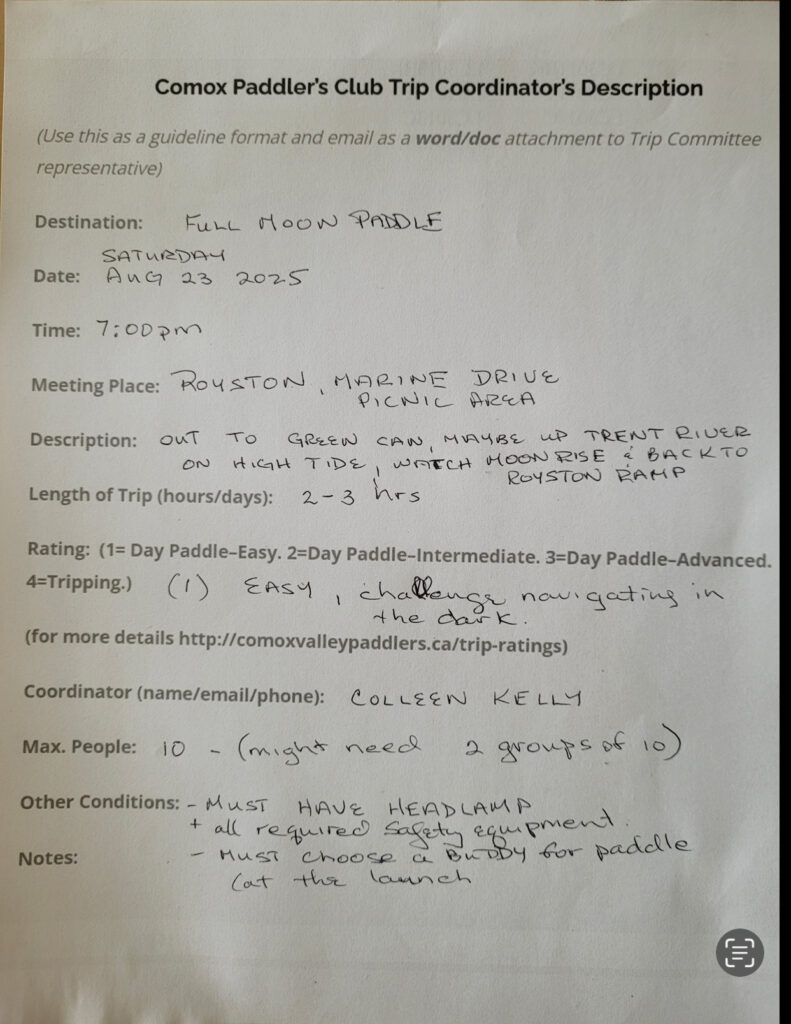 Comox Paddler's Club Trip Coordinator's Description
(Use this as a guideline format and email as a word/doc attachment to Trip Committee
representative)
Destination: FULL MOON PADDLE
SATURDAY
Date: AUG 23 2025
Time: 7:00pm
Meeting Place: ROYSTON, MARINE DRIVE
PICNIC AREA
Description: OUT TO GREEN CAN, MAYBE UP TRENT RIVER
ON HIGH TIDE, WATCH MOONRISE & BACK TO
ROYSTON RAMP
Length of Trip (hours/days): 2-3 hrs
Rating: (1= Day Paddle–Easy. 2=Day Paddle–Intermediate. 3=Day Paddle–Advanced.
4=Tripping.) (1) EASY, challenge navigating in
the dark.
(for more details http://comoxvalleypaddlers.ca/trip-ratings)
Coordinator (name/email/phone): COLLEEN KELLY
Max. People: 10 - (might need 2 groups of 10)
Other Conditions: - MUST HAVE HEADLAMP
+ all required safety equipment.
Notes: - MUST choose a BUDDY for paddle
(at the launch